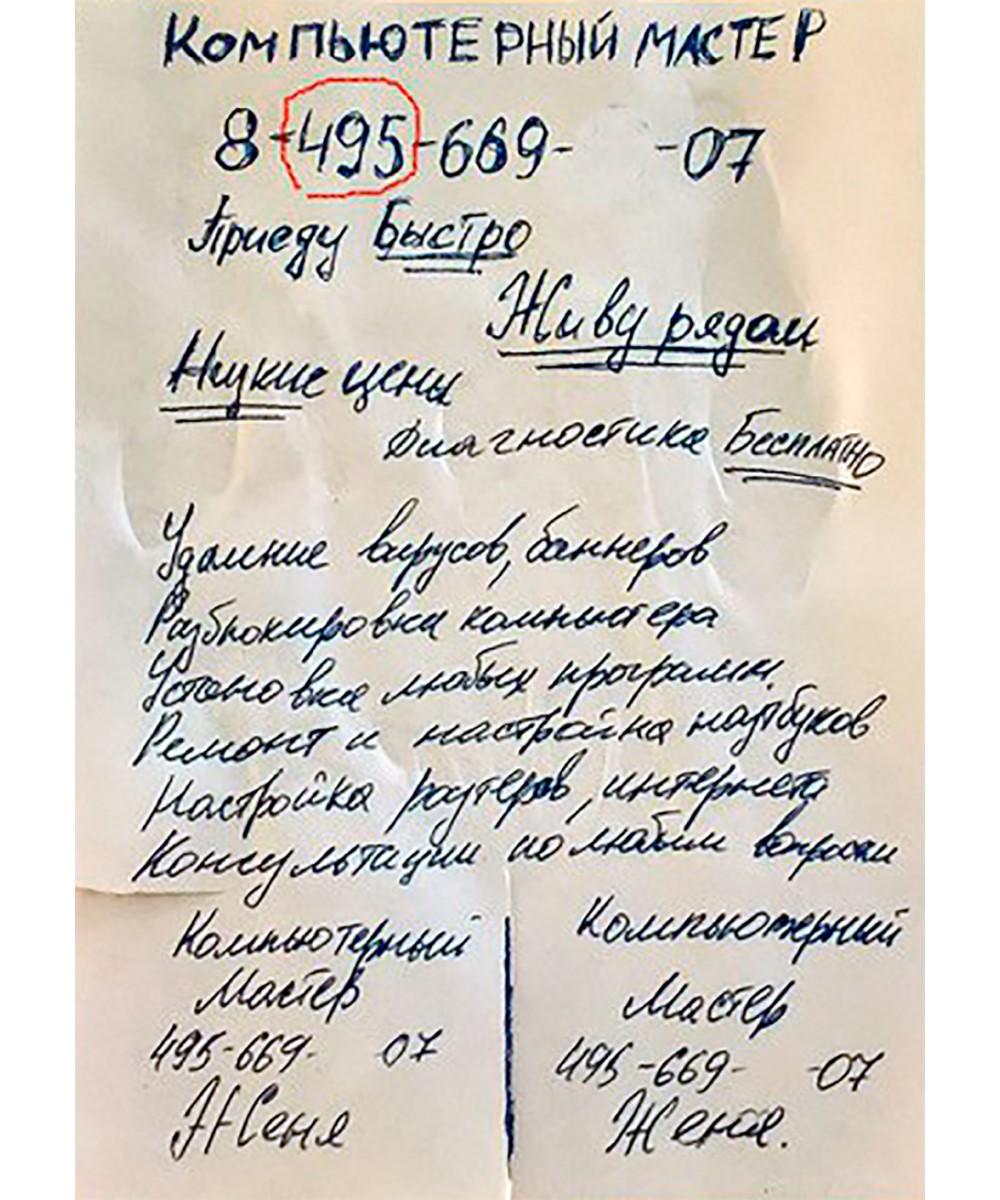 КОМПЬЮТЕРНЫЙ МАСТЕР
8-495-669- -07
Приеду Быстро
Живу рядом
Низкие цены
Диагностика Бесплатно
Удаление вирусов, баннеров
Разблокировка компьютера
Установка любых программ.
Ремонт и настройка ноутбуков
Настройка роутеров, интернета
Консультации по любым вопросам
Компьютерный
Мастер
495-669- 07
Женя
Компьютерный
Мастер
495-669- -07
Женя.